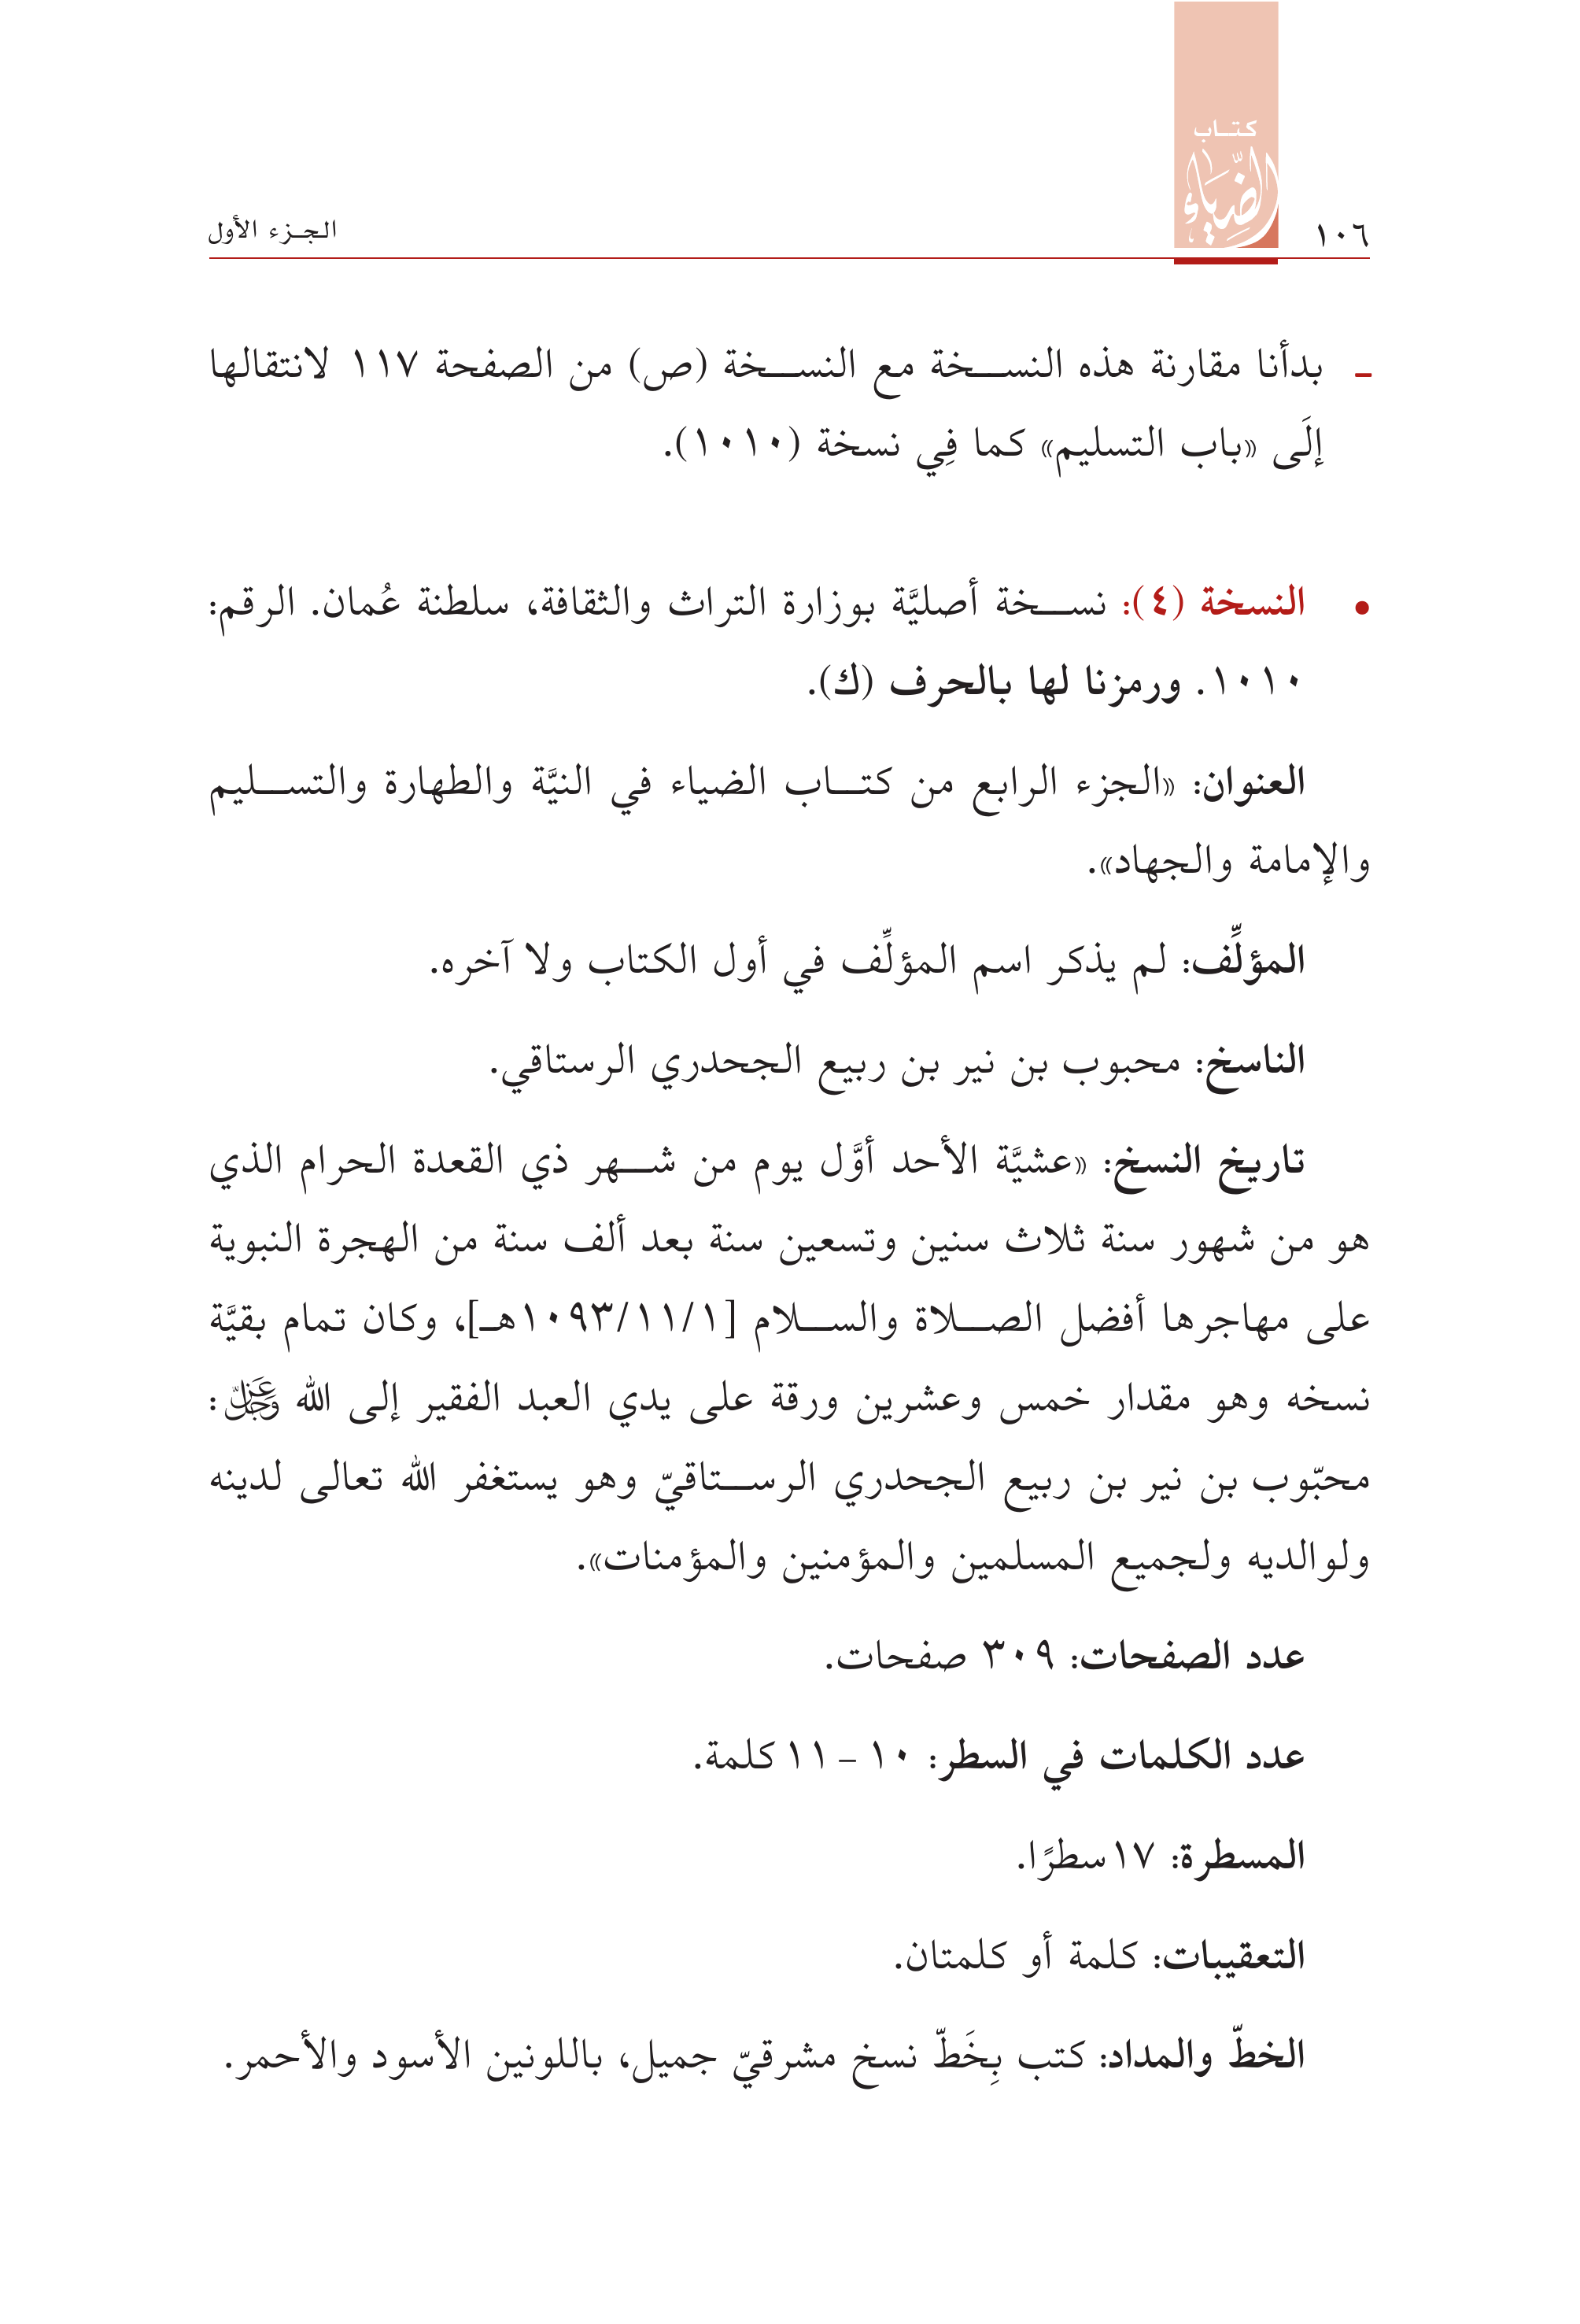 كتاب
الضِّيَاء
١٠٦
الجزء الأول
ـ بدأنا مقارنة هذه النسخة مع النسخة (ص) من الصفحة ١١٧ لانتقالها
إلَى «باب التسليم» كما فِي نسخة (١٠١٠).
• النسخة (٤): نسخة أصليَّة بوزارة التراث والثقافة، سلطنة عُمان. الرقم:
١٠١٠. ورمزنا لها بالحرف (ك).
العنوان: «الجزء الرابع من كتاب الضياء في النيَّة والطهارة والتسليم
والإمامة والجهاد».
المؤلِّف: لم يذكر اسم المؤلِّف في أول الكتاب ولا آخره.
الناسخ: محبوب بن نير بن ربيع الجحدري الرستاقي.
تاريخ النسخ: «عشيَّة الأحد أوَّل يوم من شهر ذي القعدة الحرام الذي
هو من شهور سنة ثلاث سنين وتسعين سنة بعد ألف سنة من الهجرة النبوية
على مهاجرها أفضل الصلاة والسلام [١٠٩٣/١١/١هـ]، وكان تمام بقيَّة
نسخه وهو مقدار خمس وعشرين ورقة على يدي العبد الفقير إلى الله عَزَّ وَجَلَّ:
محبّوب بن نير بن ربيع الجحدري الرستاقيّ وهو يستغفر الله تعالى لدينه
ولوالديه ولجميع المسلمين والمؤمنين والمؤمنات».
عدد الصفحات: ٣٠٩ صفحات.
عدد الكلمات في السطر: ١٠ - ١١ كلمة.
المسطرة: ١٧ سطرًا.
التعقيبات: كلمة أو كلمتان.
الخطّ والمداد: كتب بِخَطّ نسخ مشرقيّ جميل، باللونين الأسود والأحمر.